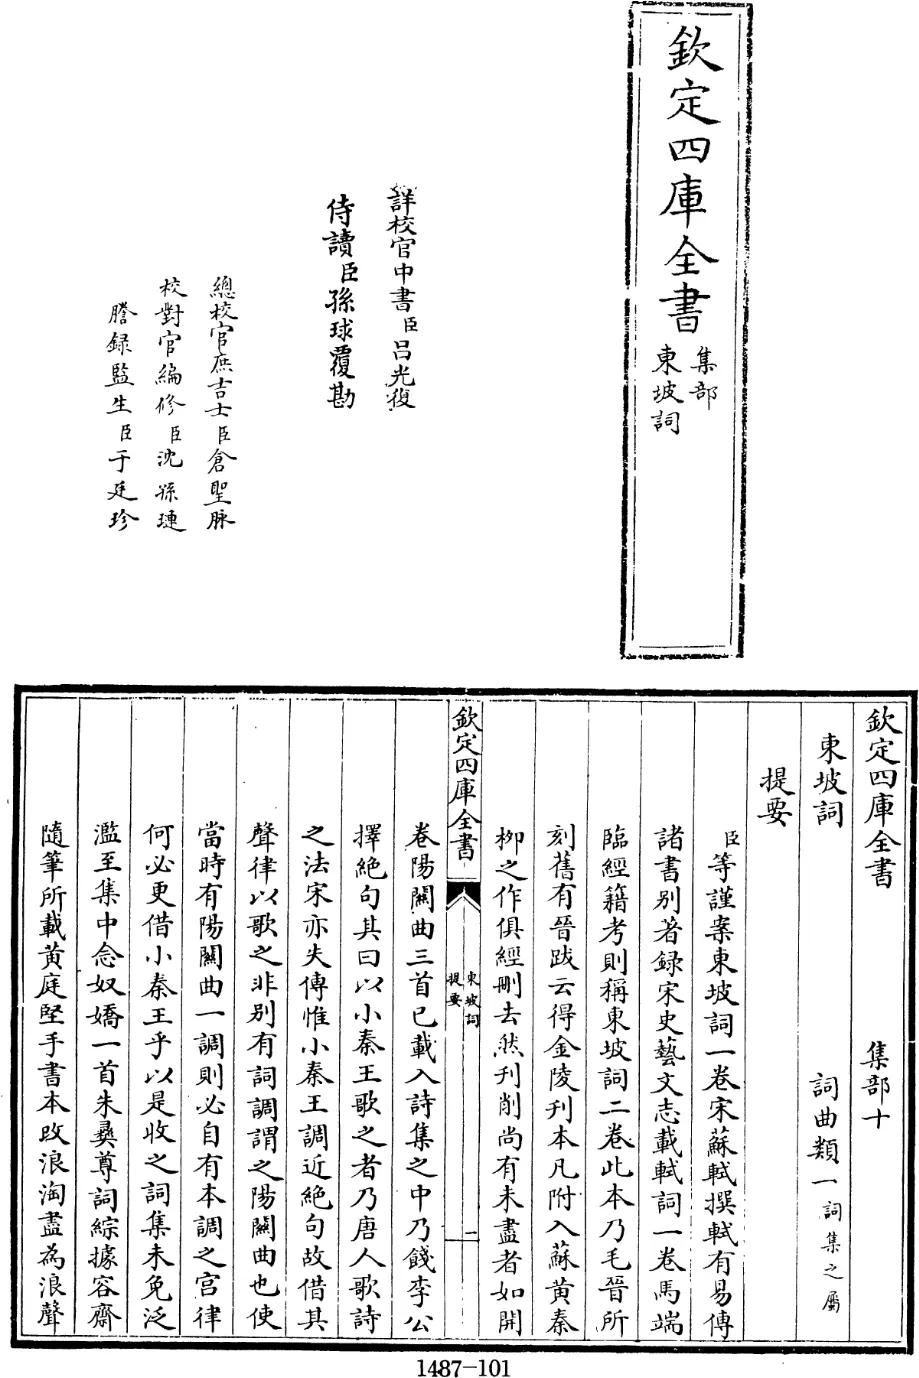 欽定四庫全書
集部
東坡詞
詳校官中書臣呂光復
侍讀臣孫球覆勘
總校官庶吉士臣倉聖脉
校對官編修臣沈孫璉
謄録監生臣于廷珍
欽定四庫全書 集部十
東坡詞 詞曲類一詞集之屬
提要
臣等謹案東坡詞一卷宋蘇軾撰軾有易傳
諸書别著録宋史藝文志載軾詞一卷馬端
臨經籍考則稱東坡詞二卷此本乃毛晉所
刻舊有晉跋云得金陵刊本凡附入蘇黄秦
栁之作俱經刪去然刊削尚有未盡者如開
欽定四庫全書
東坡詞
提要
一
卷陽闗曲三首已載入詩集之中乃餞李公
擇絶句其曰以小秦王歌之者乃唐人歌詩
之法宋亦失傳惟小秦王調近絶句故借其
聲律以歌之非别有詞調謂之陽闗曲也使
當時有陽闗曲一調則必自有本調之宫律
何必更借小秦王乎以是收之詞集未免泛
濫至集中念奴嬌一首朱彝尊詞綜據容齋
隨筆所載黄庭堅手書本改浪淘盡為浪聲
1487-101